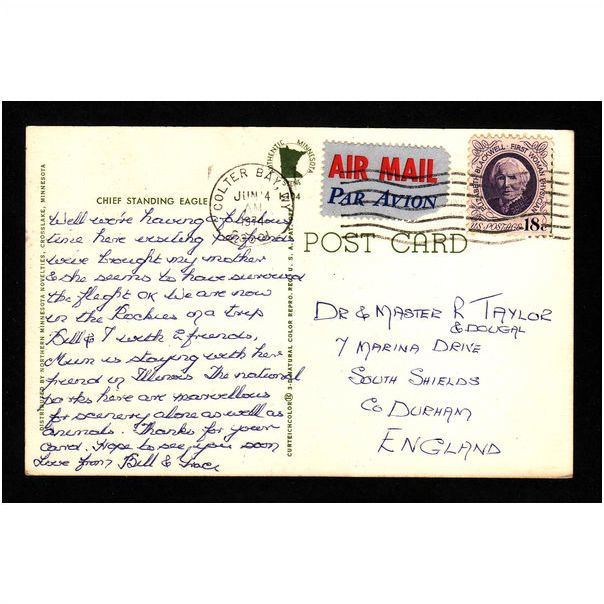 DISTRIBUTED BY NORTHERN MINNESOTA NOVELTIES, CROSSLAKE, MINNESOTA
CHIEF STANDING EAGLE
Well we're having a
time here visiting
we've brought my mother
& she seems to have survived
the flight OK We are now
in the Rockies on a trip
Bill & I with 2 friends,
Mum is staying with her
friend in Illinois The national
parks here are marvellous
for scenery alone as well as
animals. Thanks for your
card. Hope to see you soon
Love from Bill &
AUTHENTIC MINNESOTA
COLTER BAY, WY
JUN 4
AM
1974
CURTEICHCOLOR 3-D NATURAL COLOR REPRO. REG'D U.S.A.
AIR MAIL
PAR AVION
ELIZABETH BLACKWELL · FIRST WOMAN PHYSICIAN
U.S. POSTAGE 18c
POST CARD
DR & MASTER R TAYLOR
& DOUGAL
7 MARINA DRIVE
SOUTH SHIELDS
CO DURHAM
ENGLAND